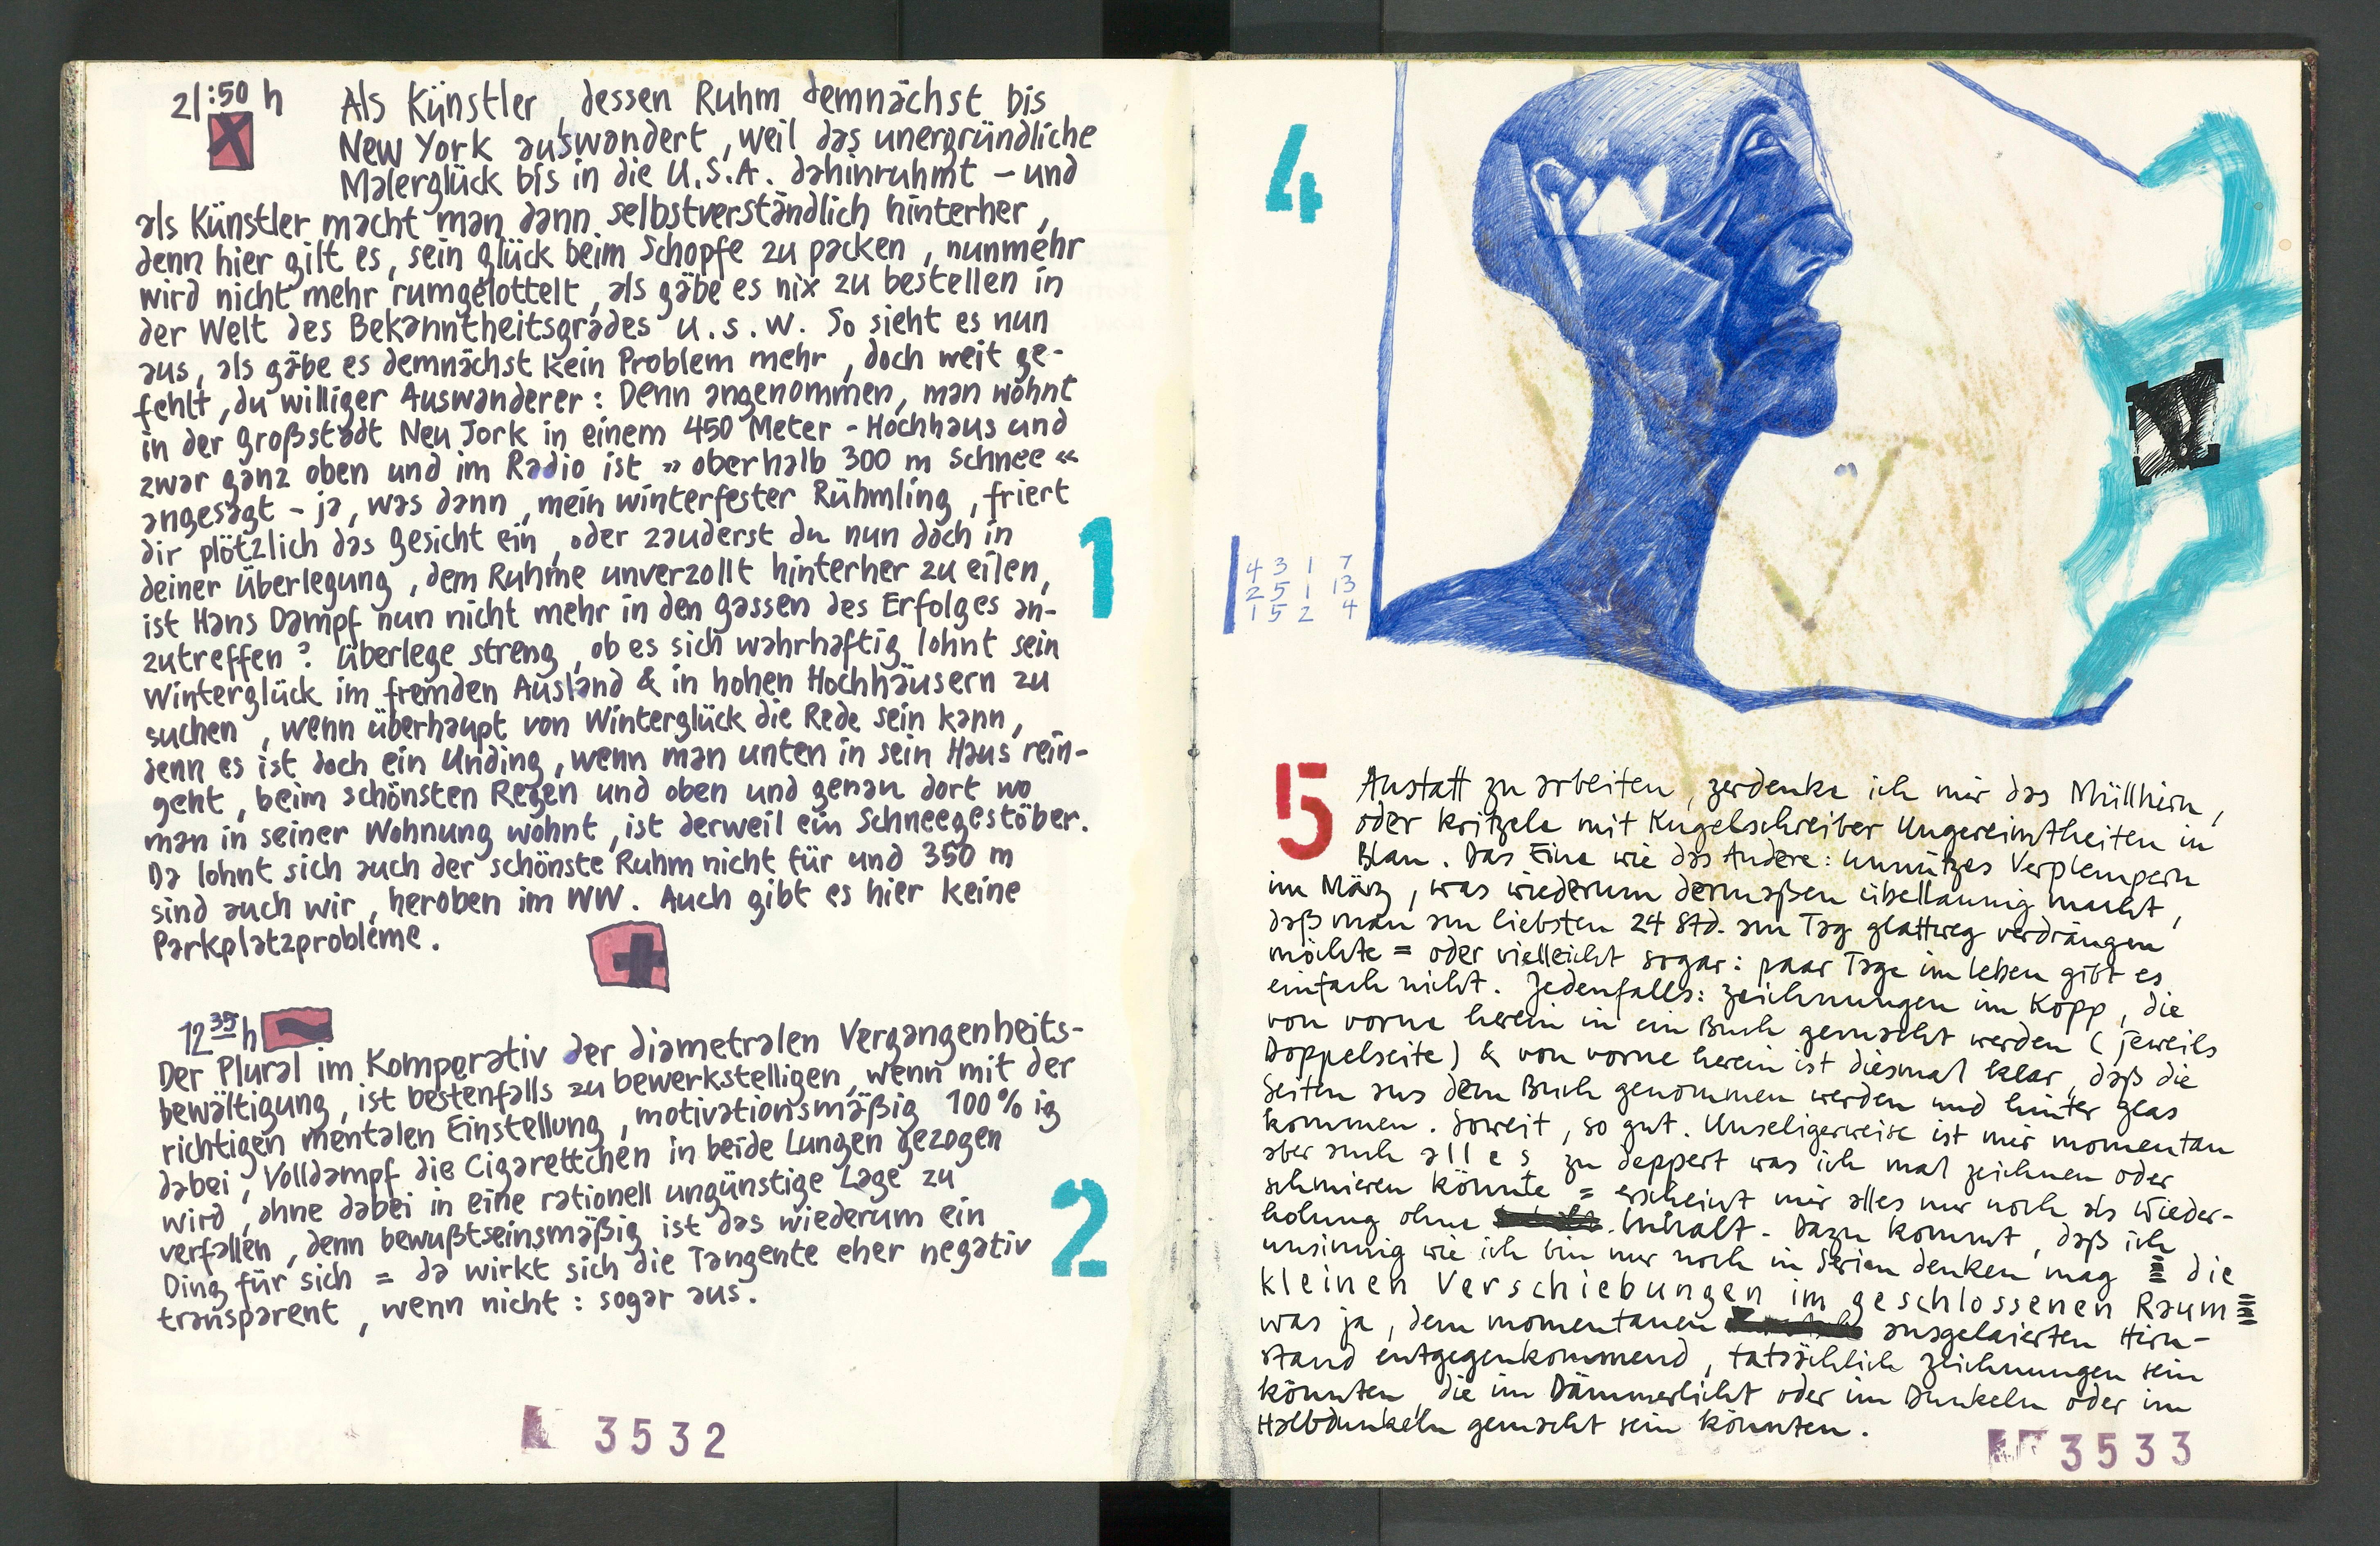 21:50 h
X
Als Künstler, dessen Ruhm demnächst bis
New York auswandert, weil das unergründliche
Malerglück bis in die U.S.A. dahinruhmt – und
als Künstler macht man dann selbstverständlich hinterher,
denn hier gilt es, sein glück beim Schopfe zu packen, nunmehr
wird nicht mehr rumgelottelt, als gäbe es nix zu bestellen in
der Welt des Bekanntheitsgrades u.s.w. So sieht es nun
aus, als gäbe es demnächst kein Problem mehr, doch weit ge-
fehlt, du williger Auswanderer: Denn angenommen, man wohnt
in der großstadt Neu Jork in einem 450 Meter - Hochhaus und
zwar ganz oben und im Radio ist »oberhalb 300 m Schnee«
angesagt – ja, was dann, mein winterfester Rühmling, friert
dir plötzlich das gesicht ein, oder zauderst du nun doch in
deiner Überlegung, dem Ruhme unverzollt hinterher zu eilen,
ist Hans Dampf nun nicht mehr in den gassen des Erfolges an-
zutreffen? Überlege streng, ob es sich wahrhaftig lohnt sein
Winterglück im fremden Ausland & in hohen Hochhäusern zu
suchen, wenn überhaupt von Winterglück die Rede sein kann,
denn es ist doch ein Unding, wenn man unten in sein Haus rein-
geht, beim schönsten Regen und oben und genau dort wo
man in seiner Wohnung wohnt, ist derweil ein Schneegestöber.
Da lohnt sich auch der schönste Ruhm nicht für und 350 m
sind auch wir, heroben im WW. Auch gibt es hier keine
Parkplatzprobleme.
1
12 35 h
Der Plural im Komparativ der diametralen Vergangenheits-
bewältigung, ist bestenfalls zu bewerkstelligen, wenn mit der
richtigen mentalen Einstellung, motivationsmäßig 100 % ig
dabei, Volldampf die Cigarettchen in beide Lungen gezogen
wird, ohne dabei in eine rationell ungünstige Lage zu
verfallen, denn bewußtseinsmäßig ist das wiederum ein
Ding für sich = da wirkt sich die Tangente eher negativ
transparent, wenn nicht: sogar aus.
2
3532
4
4 3 1 7
2 5 1 13
1 5 2 4
5
Anstatt zu arbeiten, zerdenke ich mir das Müllhirn,
oder kritzele mit Kugelschreiber Ungereimtheiten in
Blau. Das Eine wie das Andere: unnützes Verplempern
im März, was wiederum dermaßen übellaunig macht,
daß man am liebsten 24 Std. am Tag glattweg verdrängen
möchte = oder vielleicht sogar: paar Tage im leben gibt es
einfach nicht. Jedenfalls: zeichnungen im Kopp, die
von vorne herein in ein Buch gemacht werden (jeweils
Doppelseite) & von vorne herein ist diesmal klar, daß die
Seiten aus dem Buch genommen werden und hinter glas
kommen. Soweit, so gut. Unseligerweise ist mir momentan
aber auch alles zu deppert was ich mal zeichnen oder
schmieren könnte = erscheint mir alles nur noch als Wieder-
holung ohne Inhalt. Dazu kommt, daß ich
unsinnig wie ich bin nur noch in Serien denken mag die
kleinen Verschiebungen im geschlossenen Raum
was ja, dem momentanen ausgelaierten Hirn-
stand entgegenkommend, tatsächlich zeichnungen sein
könnten, die im Dämmerlicht oder im Dunkeln oder im
Halbdunkeln gemacht sein könnten.
3533